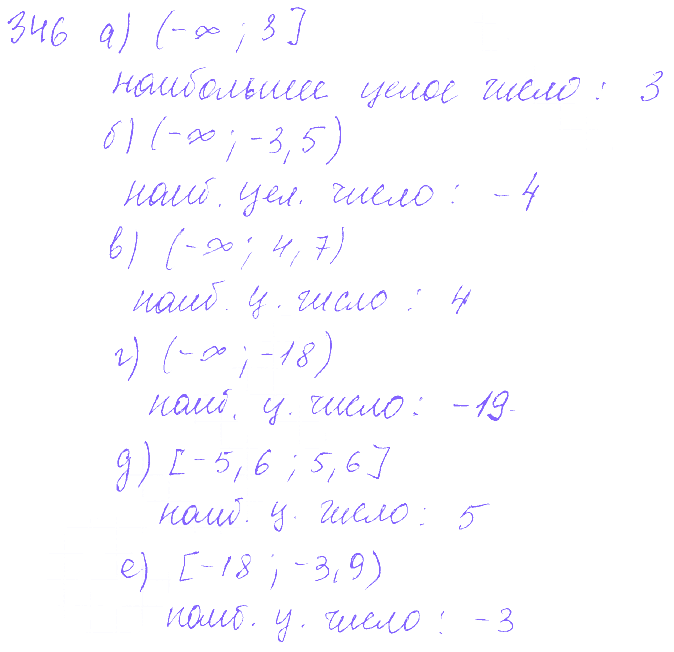 346 а) (-∞ ; 3]
наибольшее целое число : 3
б) (-∞ ; -3,5)
наиб. цел. число : -4
в) (-∞ ; 4,7)
наиб. ц. число : 4
г) (-∞ ; -18)
наиб. ц. число : -19
д) [-5,6 ; 5,6]
наиб. ц. число : 5
е) [-18 ; -3,9)
наиб. ц. число : -3